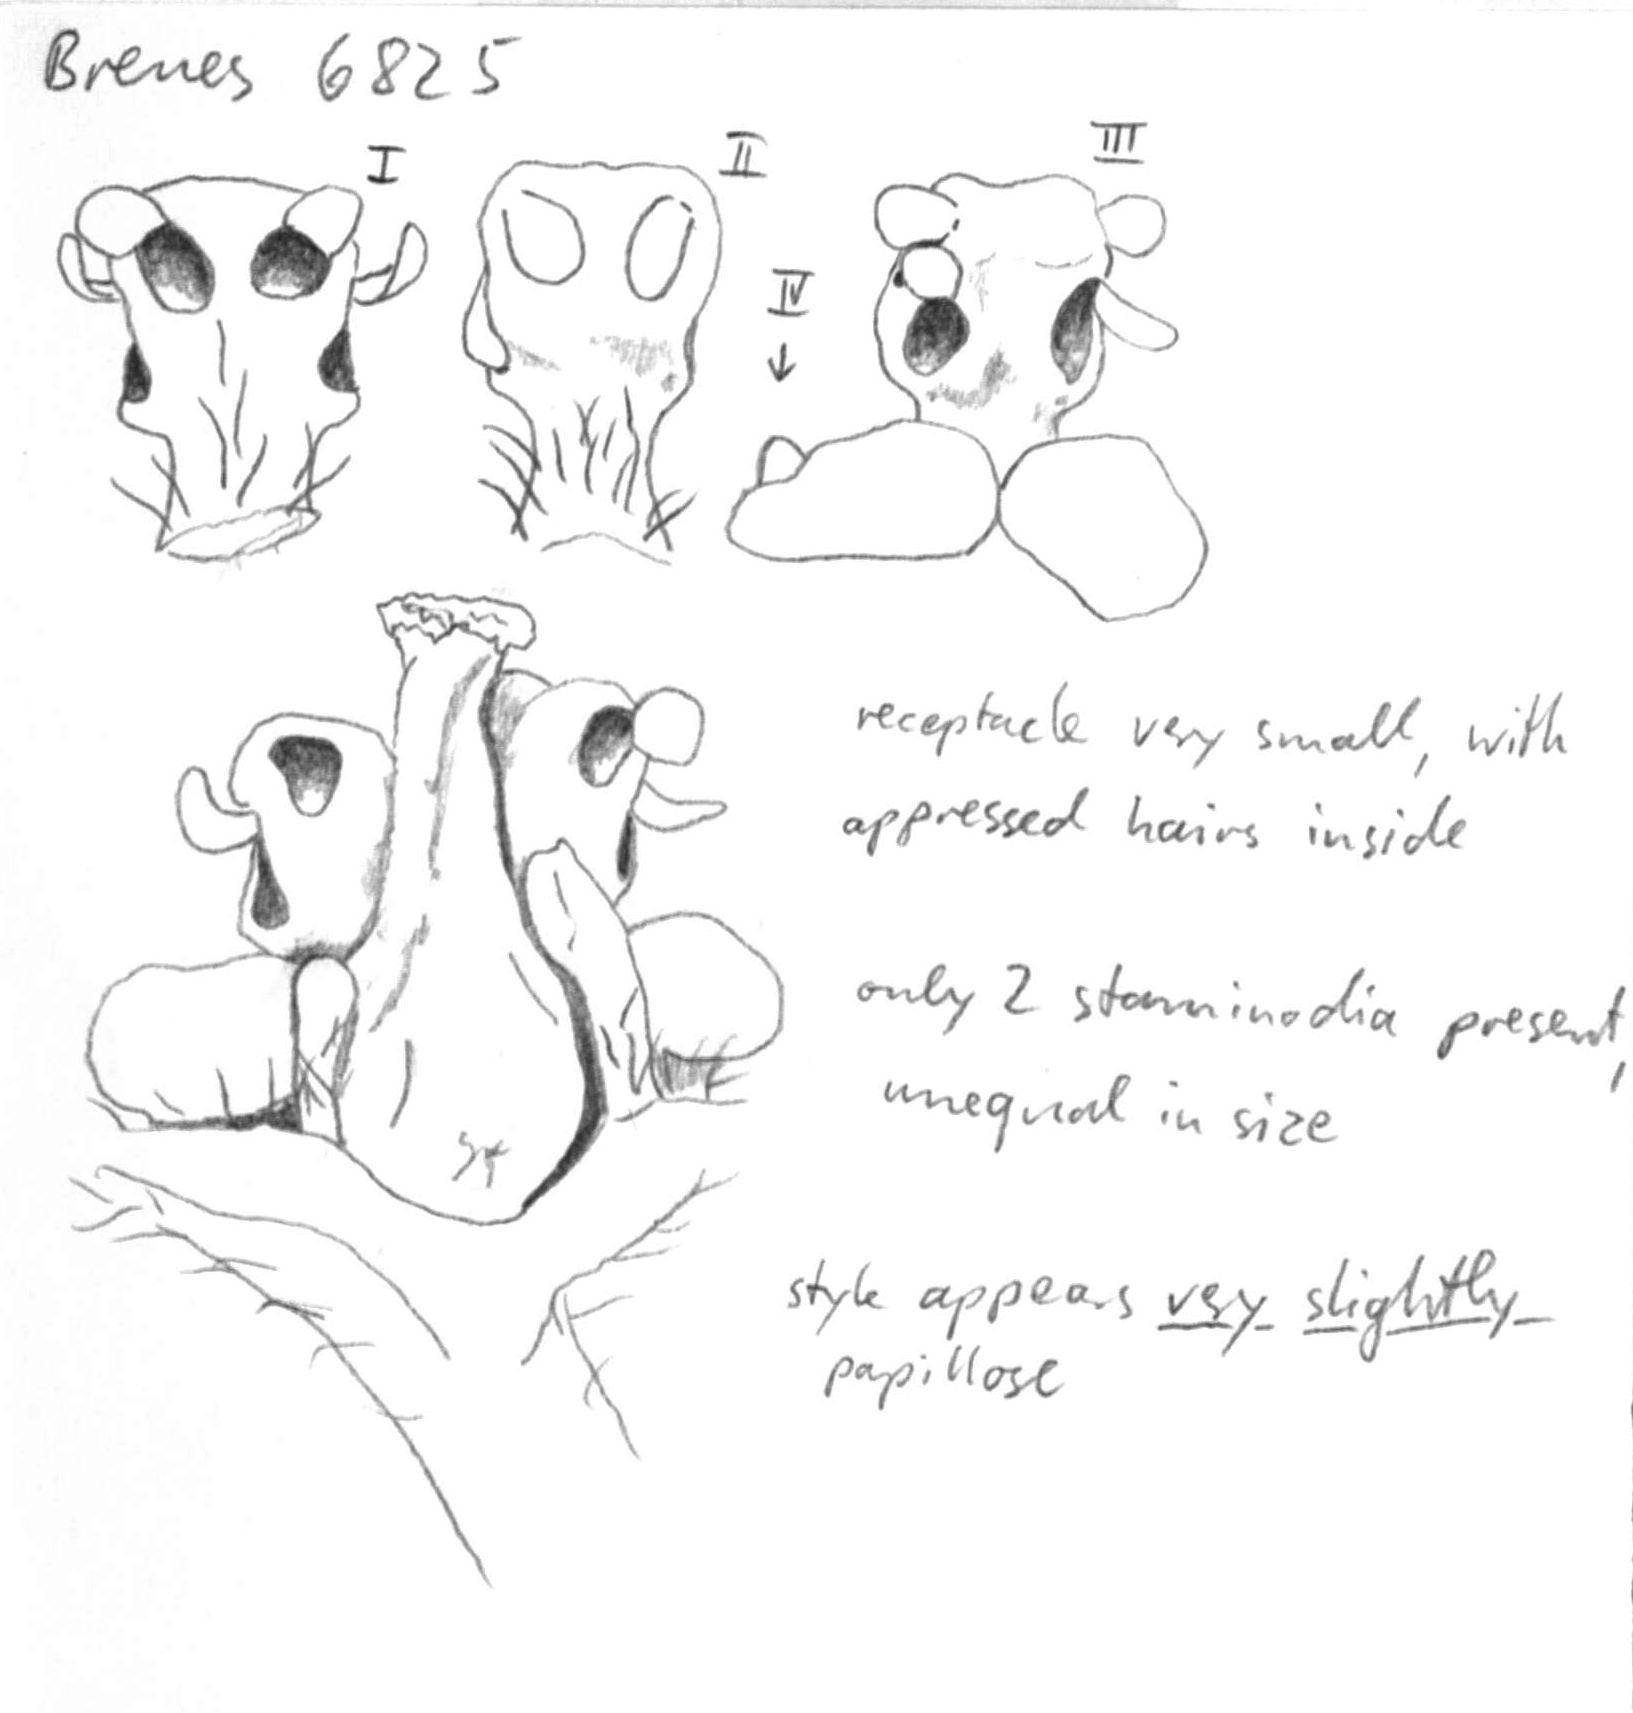 Brenes 6825
I
II
III
IV
receptacle very small, with
appressed hairs inside
only 2 staminodia present,
unequal in size
style appears very slightly
papillose